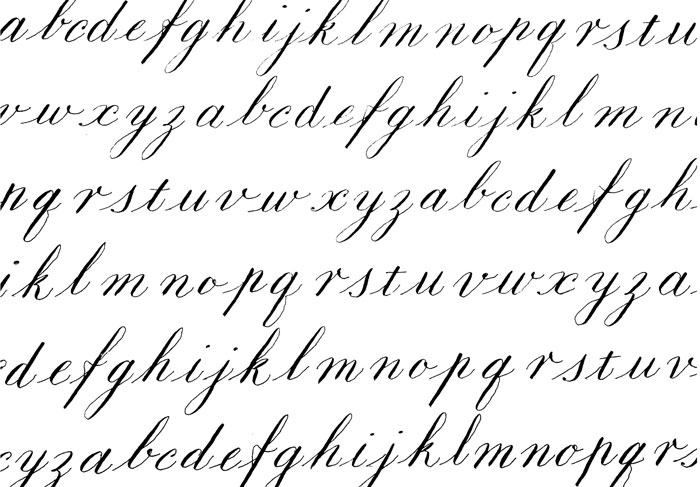 abcdefghijklmnopqrstu
vwxyzabcdefghijklmn
pqrstuvwxyzabcdefgh
ijklmnopqrstuvwxyza
cdefghijklmnopqrstuv
xyzabcdefghijklmnopqrs